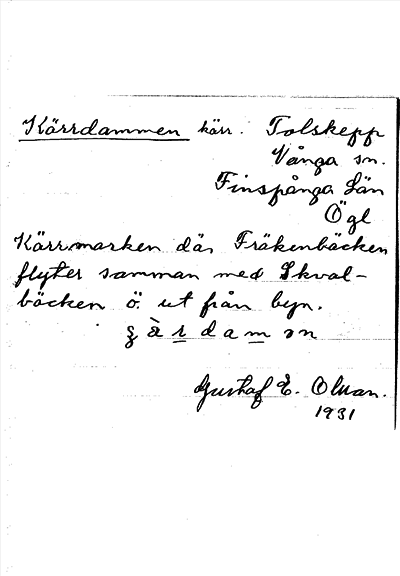 Kärrdammen kärr. Tolskepp
Vånga sn.
Finspånga Län
Ögl
Kärrmarken där Fräkenbäcken
flyter samman med Skval-
bäcken ö. ut från byn.
Gustaf E.
1931